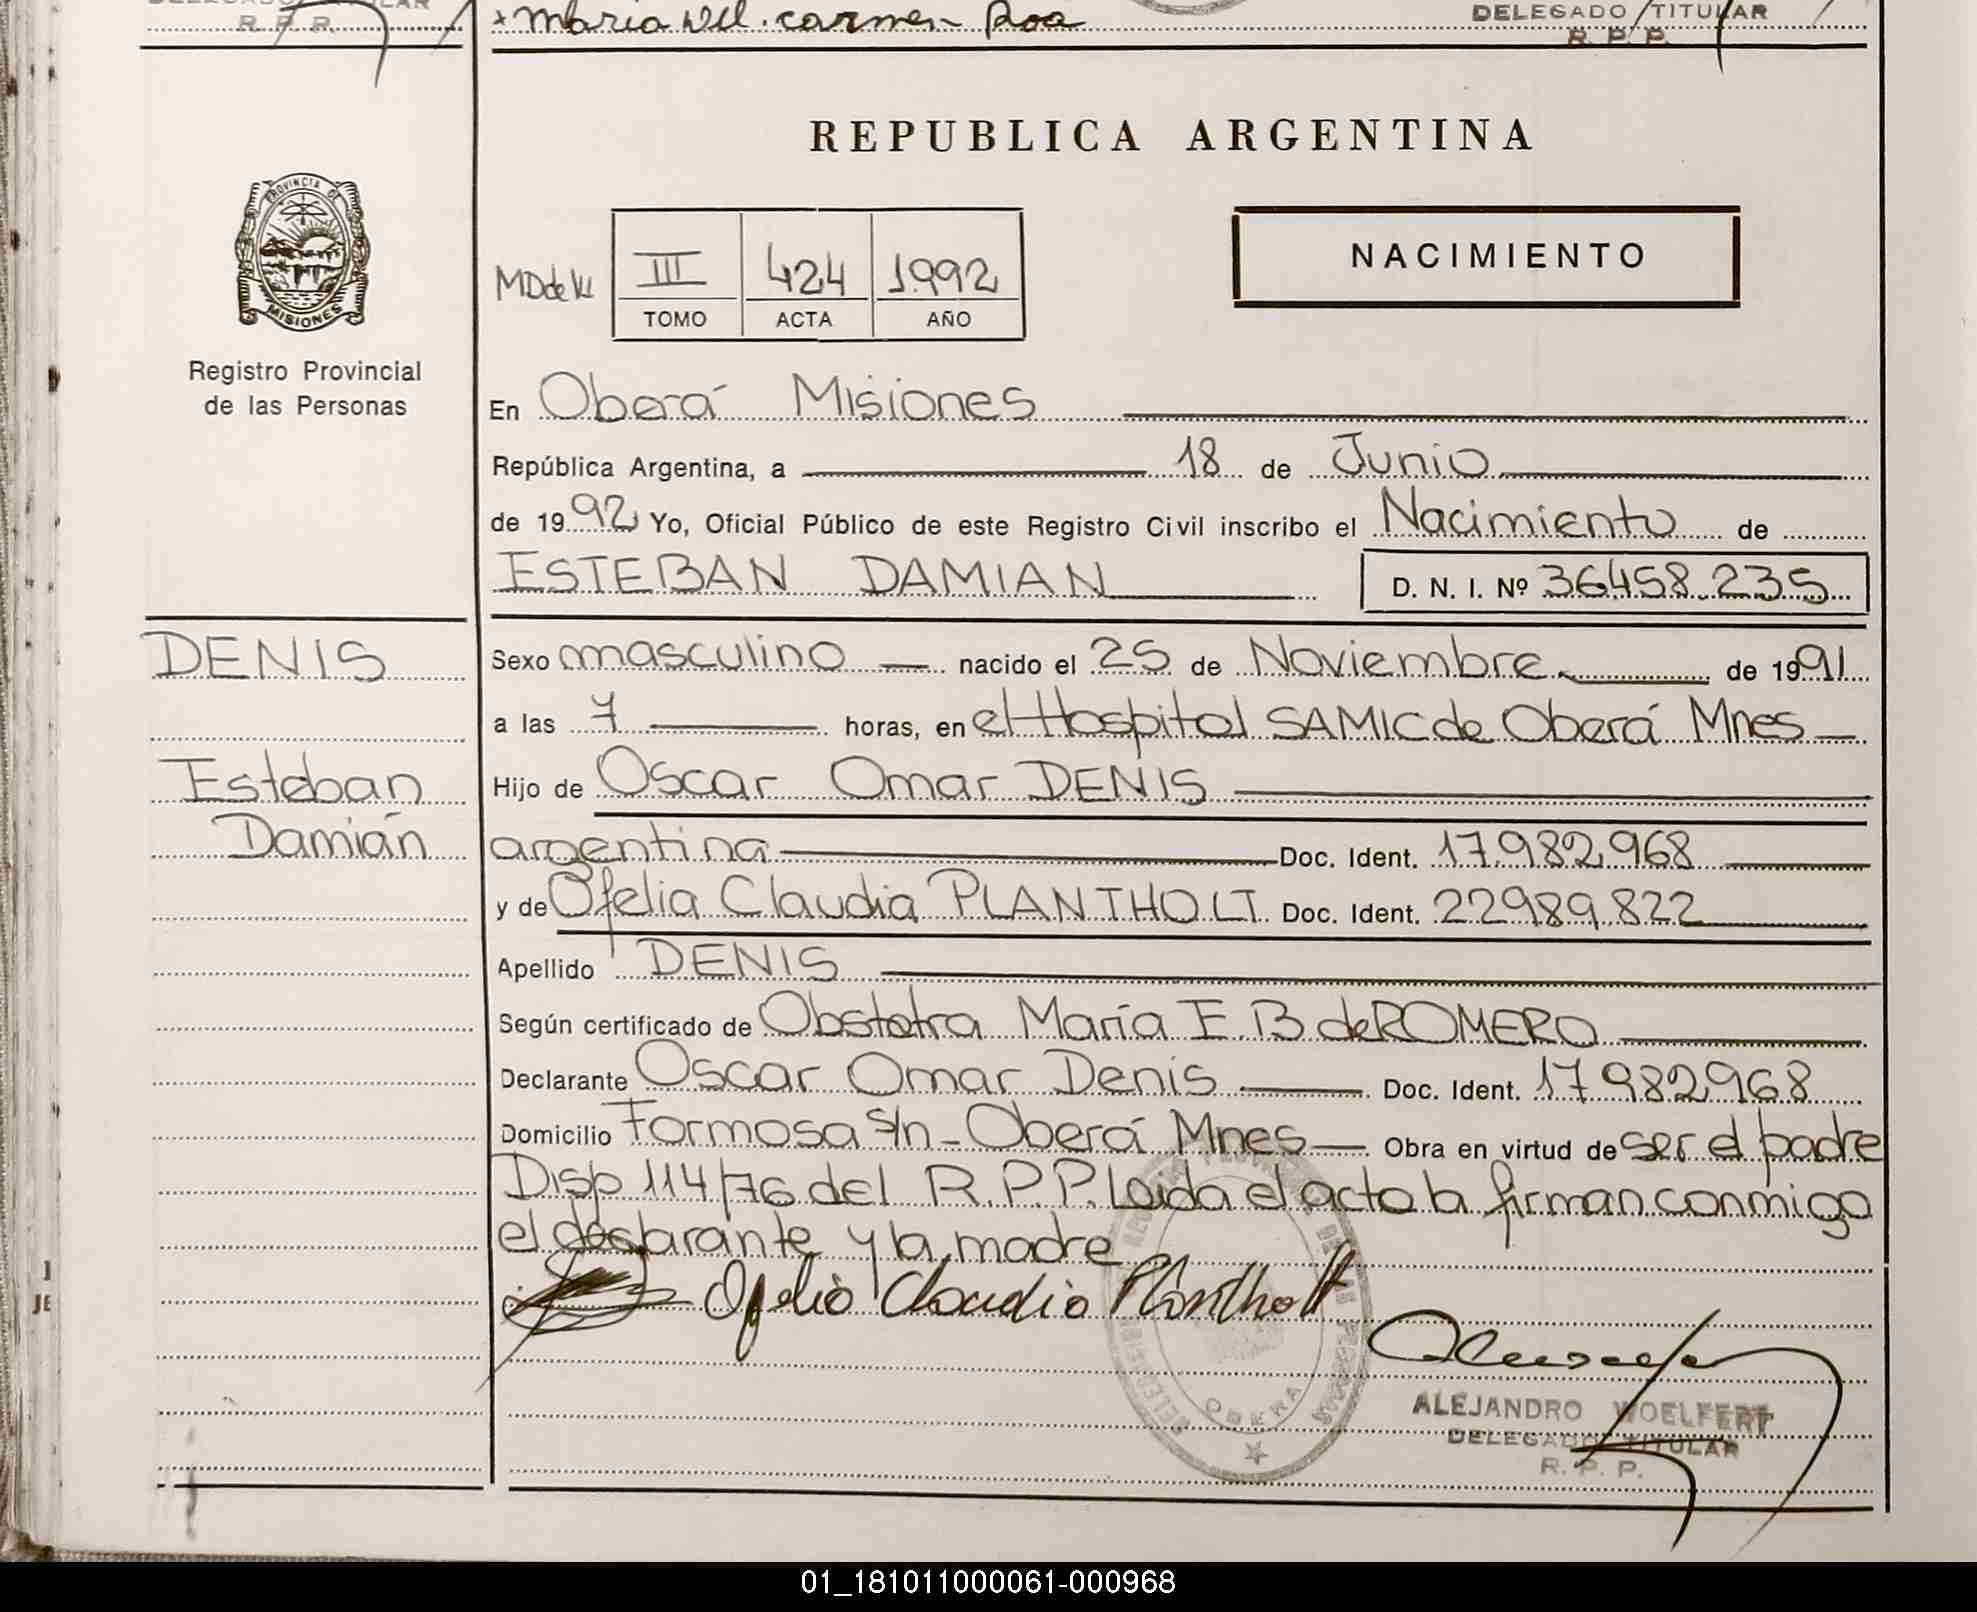 DELEGADO TITULAR
R. P. P.
Maria del. carmen Roa
DELEGADO TITULAR
R. P. P.
REPUBLICA ARGENTINA
PROVINCIA DE
MISIONES
Registro Provincial
de las Personas
III 424 1992
TOMO ACTA AÑO
NACIMIENTO
En Oberá Misiones
República Argentina, a 18 de Junio
de 1992 Yo, Oficial Público de este Registro Civil inscribo el Nacimiento de
ESTEBAN DAMIAN D. N. I. Nº 36458.235
DENIS
Esteban
Damián
Sexo masculino nacido el 25 de Noviembre de 1991
a las 7 horas, en el Hospital SAMIC de Oberá Mnes
Hijo de Oscar Omar DENIS
argentina Doc. Ident. 17.982.968
y de Ofelia Claudia PLANTHOLT Doc. Ident. 22989.822
Apellido DENIS
Según certificado de Obstetra María E. B de ROMERO
Declarante Oscar Omar Denis Doc. Ident. 17982968
Domicilio Formosa s/n - Oberá Mnes Obra en virtud de ser el padre
Disp 114/76 del R.P.P. Leida el acta la firman conmigo
el declarante y la madre
Ofelia Claudia Plantholt
OBERA
ALEJANDRO WOELFERT
DELEGADO TITULAR
R. P. P.
01_181011000061-000968